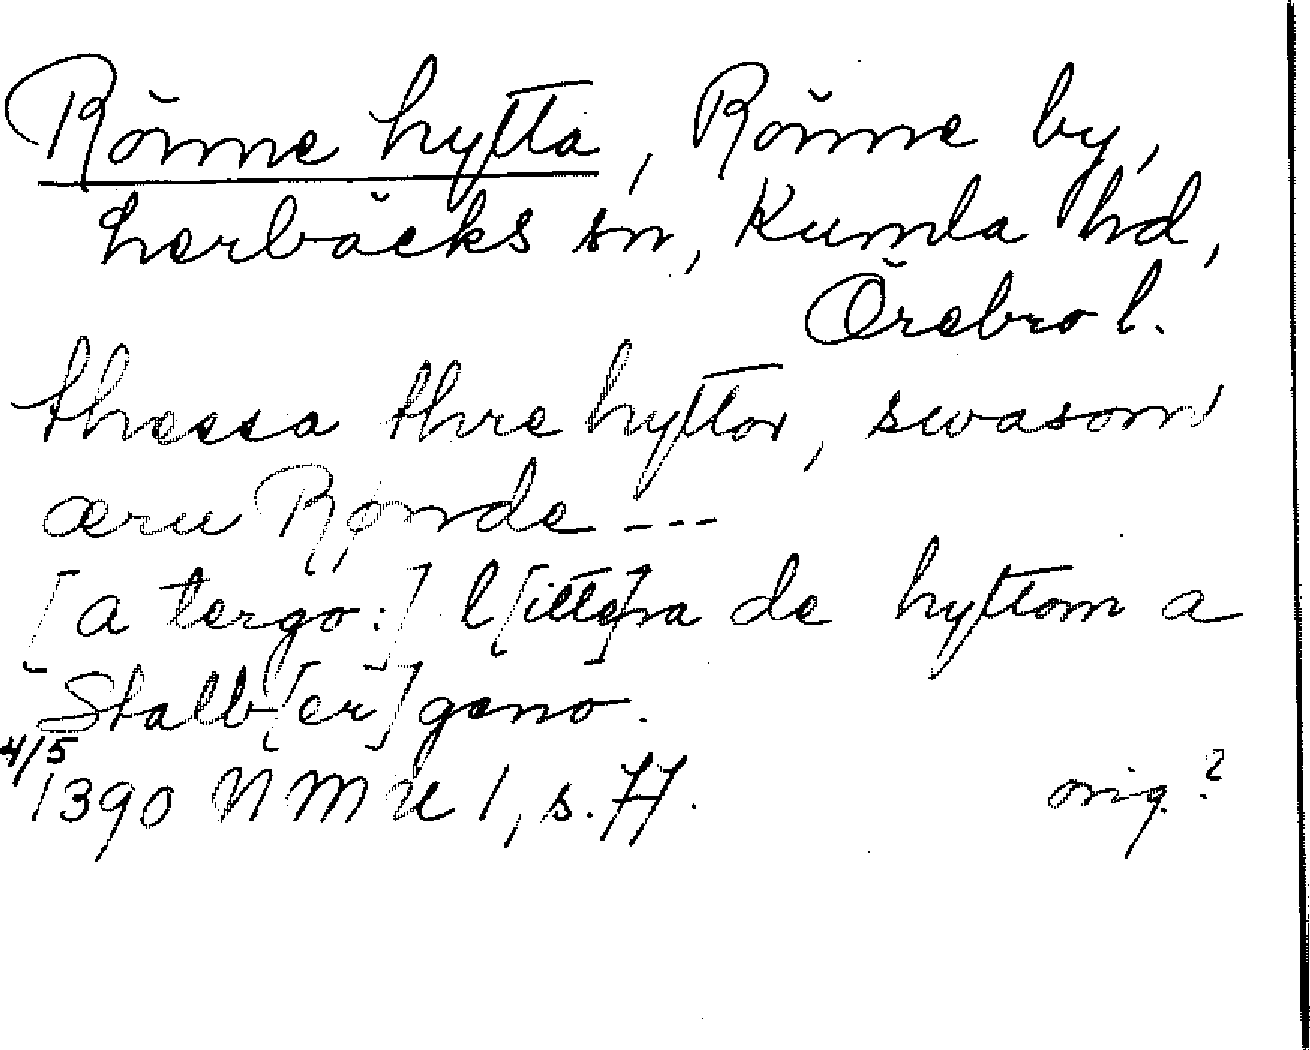 Rönne hytta, Rönne by,
Lerbäcks sn, Kumla hd,
Örebro l.
thessa thre hyttor, swasom
æru Rønde ---
[a tergo:] l[itte]ra de hyttom a
Stalb[er]geno.
4/5
1390 NMU 1, s. 77. orig.?